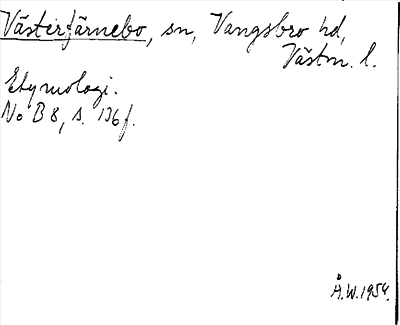 Västerfärnebo, sn, Vangsbro hd,
Västm. l.
Etymologi.
No B 8, s. 136 f.
Å.W. 1954.